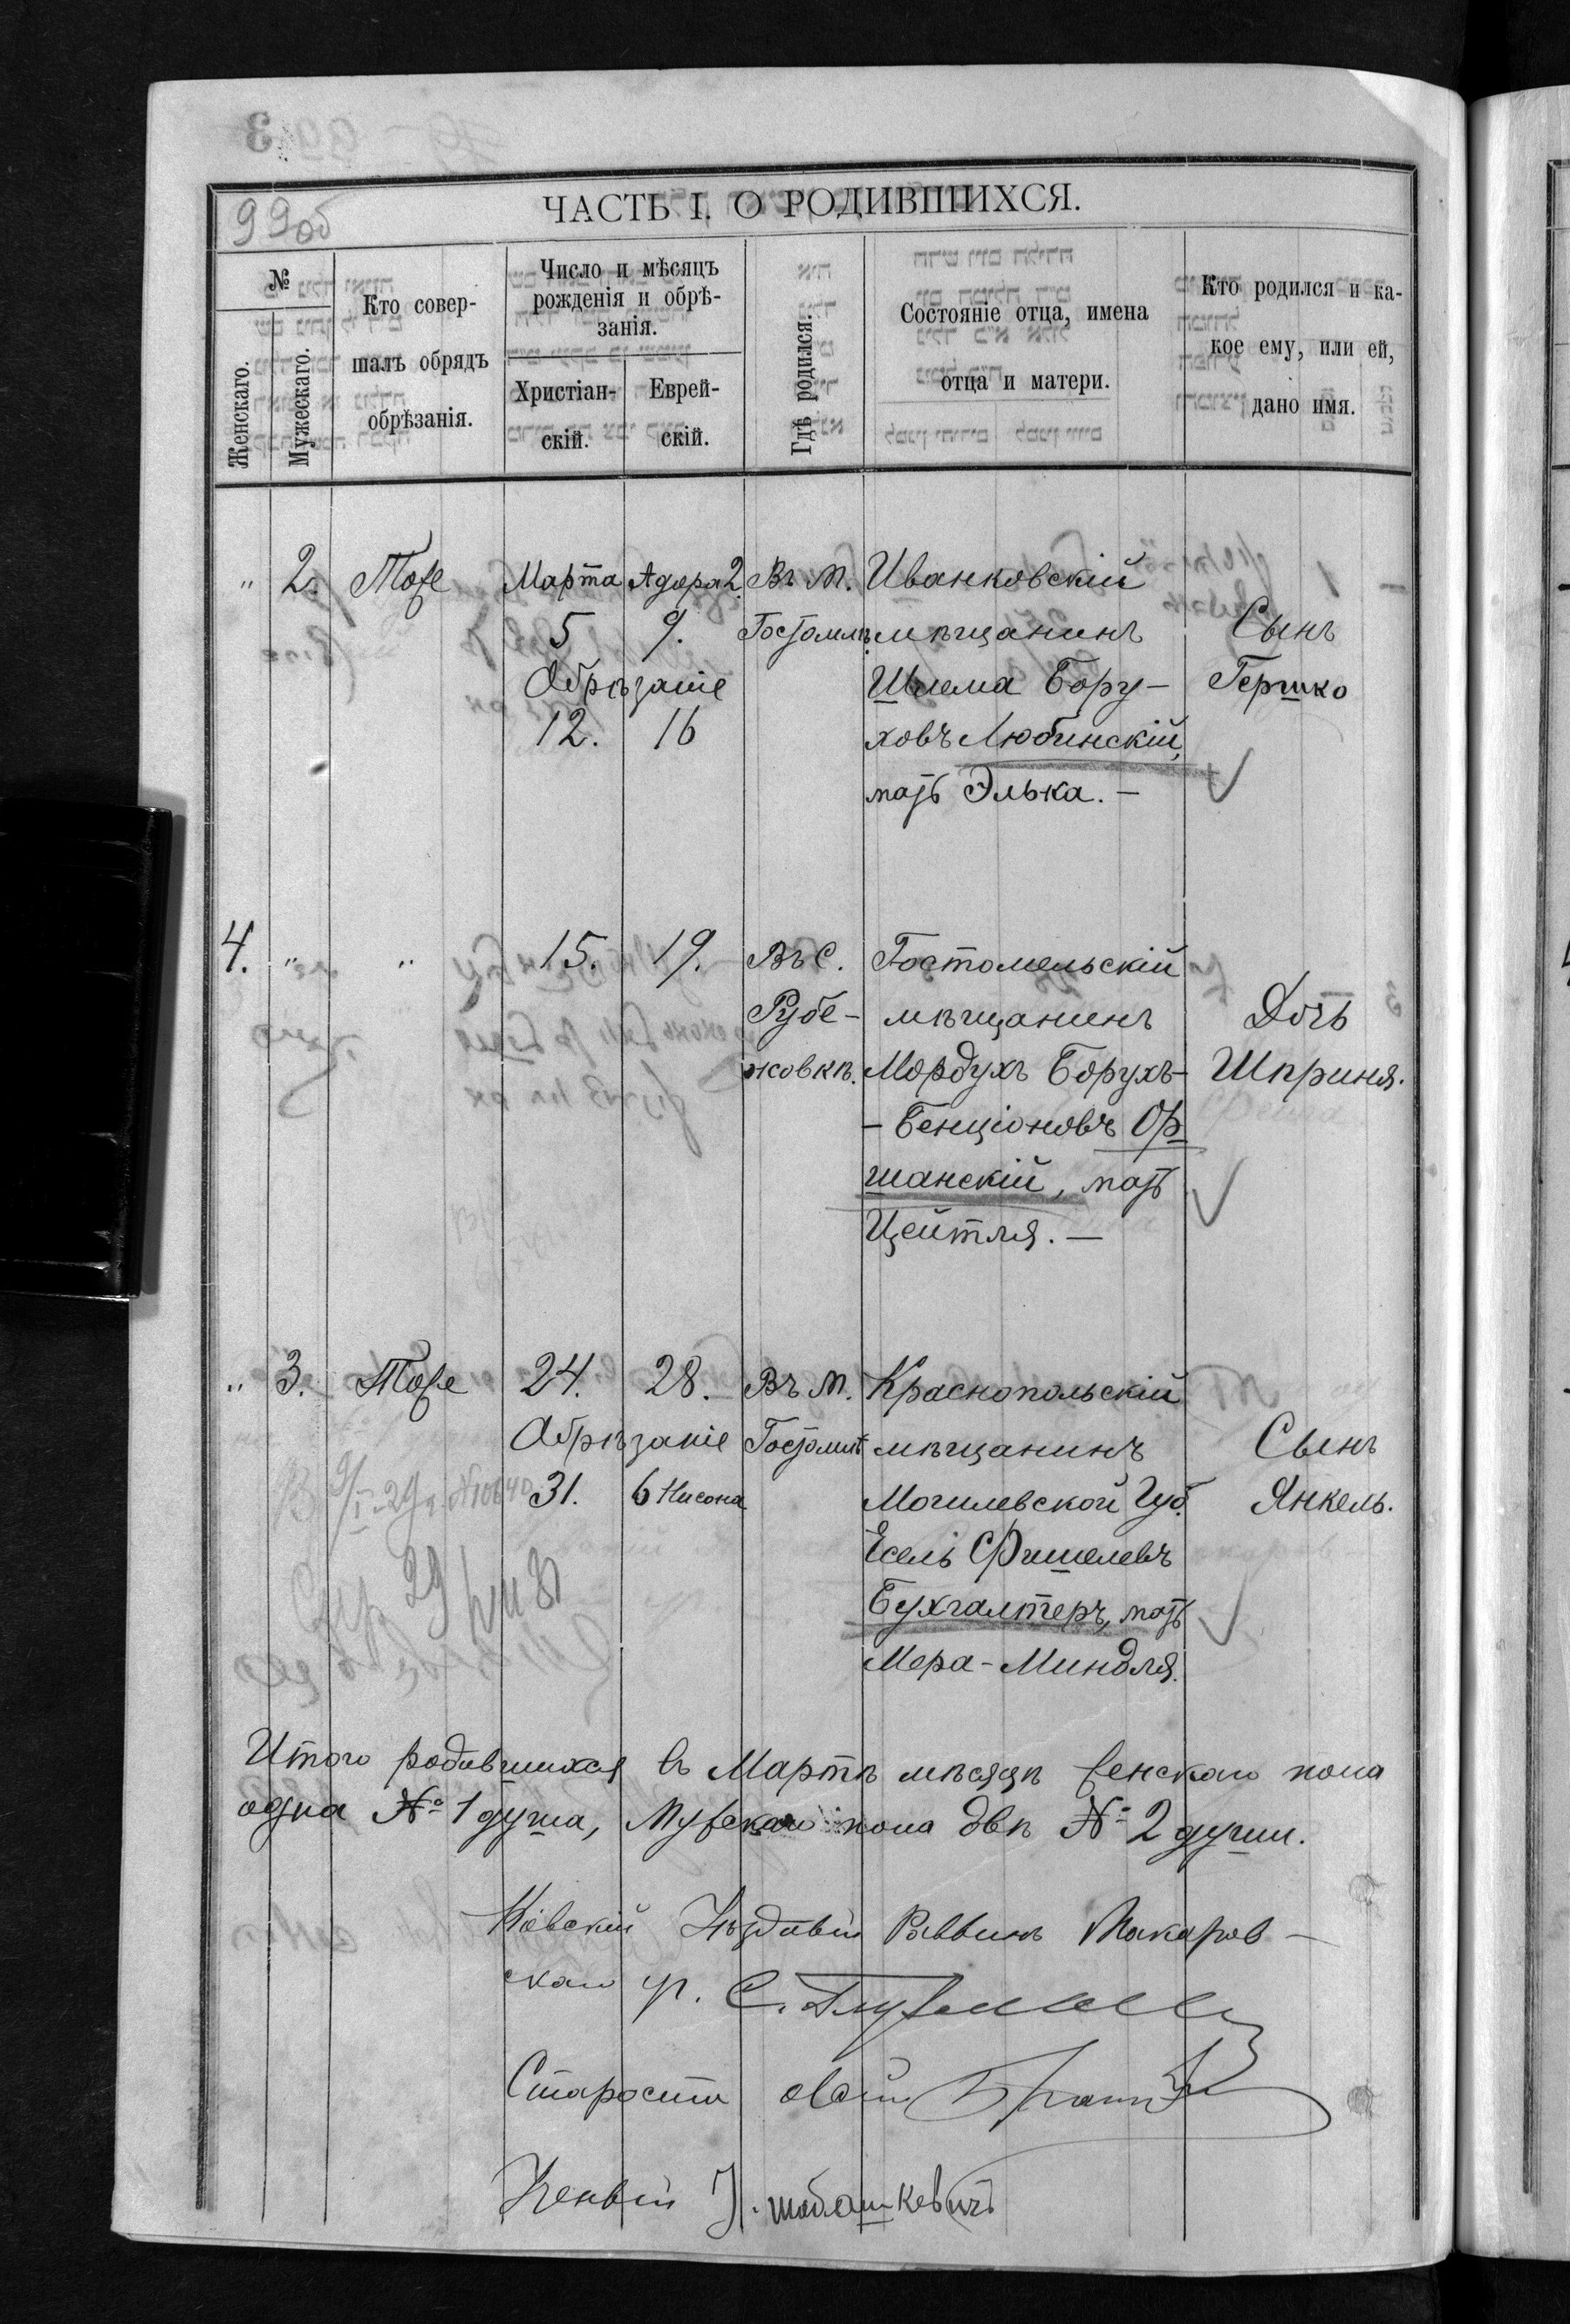 99об
ЧАСТЬ I. О РОДИВШИХСЯ.
№
Женскаго.
Мужескаго.
Кто совер-
шалъ обрядъ
обрѣзанія.
Число и мѣсяцъ
рожденія и обрѣ-
занія.
Христіан-
скій.
Еврей-
скій.
Гдѣ родился.
Состояніе отца, имена
отца и матери.
Кто родился и ка-
кое ему, или ей,
дано имя.
" 2. Тоже Марта Адора 2. Въ м. Иванковскій
5 9. Гостомлѣ. мѣщанинъ Сынъ
Обрѣзаніе Шлема Бору- Гершко
12. 16 ховъ Любинскій,
мать Элька. —
4. " " 15. 19. Въ с. Гостомельскій
Рубе- мѣщанинъ Дочь
жовкѣ. Мордухъ Борухъ- Шприня.
- Бенціоновъ Ор
шанскій, мать
Цейтля. —
" 3. Тоже 24. 28. Въ м. Краснопольскій
Обрѣзаніе Гостомлѣ мѣщанинъ Сынъ
31. 6 Нисона Могилевской Губ. Янкель.
Есель Фишелевъ
Бухгалтеръ, мать
Мера-Миндля.
Итого родившихся въ Мартѣ мѣсяцѣ женскаго пола
одна № 1 душа, Мужскаго пола двѣ № 2 души.
Кіевскій Уѣздный Раввинъ Макаров-
скаго уч. С.
Староста
Ученый І. Шабашкевичъ